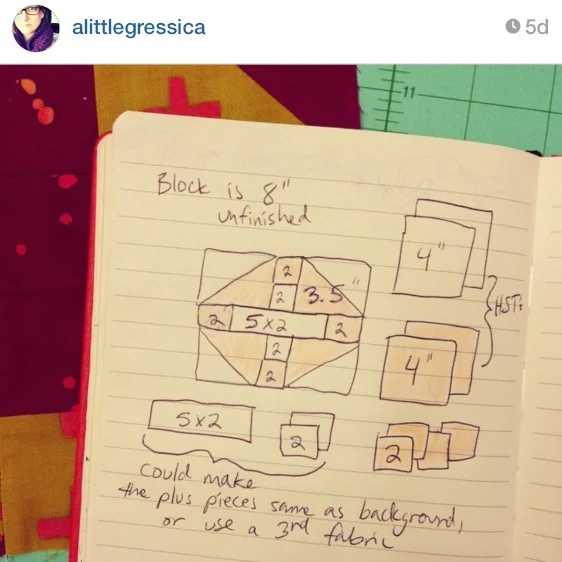 alittlegressica
5d
11
Block is 8"
unfinished
2
2
3.5"
2
5x2
2
2
2
4"
4"
HSTs
5x2
2
2
could make
the plus pieces same as background,
or use a 3rd fabric